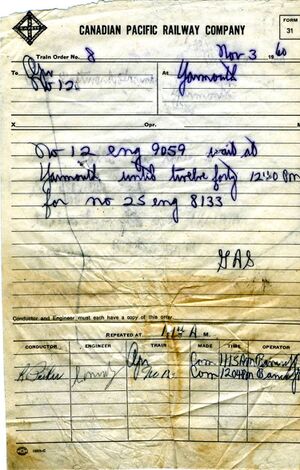 CANADIAN PACIFIC RAILWAY COMPANY
FORM
31
Train Order No. 8 Nov 3 1960
To Opr At Yarmouth
No 12
X Opr.
No 12 eng 9059 wait at
Yarmouth until twelve forty 12:40 PM
for no 25 eng 8133
GAS
Conductor and Engineer must each have a copy of this order.
REPEATED AT M.
CONDUCTOR ENGINEER TRAIN MADE TIME OPERATOR
Opr Com
No 12 Com